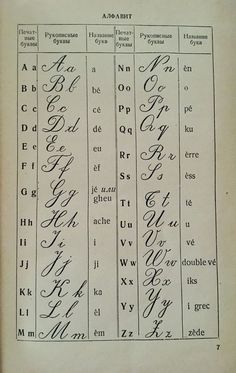 АЛФАВИТ
Печатные буквы Рукописные буквы Название букв Печатные буквы Рукописные буквы Название букв
A a A a a N n N n èn
B b B b bé O o O o o
C c C c cé P p P p pé
D d D d dé Q q Q q ku
E e E e eu R r R r èrre
F f F f èf S s S s èss
G g G g jé или gheu T t T t té
H h H h ache U u U u u
I i I i i V v V v vé
J j J j ji W w W w double vé
K k K k ka X x X x iks
L l L l èl Y y Y y i grec
M m M m èm Z z Z z zède
7